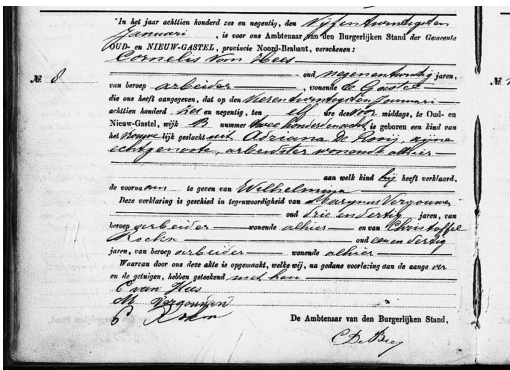 In het jaar achttien honderd zes en negentig, den Vijfentwintigsten
Januari, is voor ons Ambtenaar van den Burgerlijken Stand der Gemeente
OUD- en NIEUW-GASTEL, provincie Noord-Brabant, verschenen:
Cornelis van Hees
№. 8 oud negenentwintig jaren,
van beroep arbeider, wonende te Gastel
die ons heeft aangegeven, dat op den Vierentwintigsten Januari
achttien honderd zes en negentig, ten elf ure des voor middags, te Oud- en
Nieuw-Gastel, wijk B nummer twee honderd is geboren een kind van
het vrouwelijk geslacht uit Adriana de Rooij, zijne
echtgenoote, arbeidster wonende alhier
aan welk kind hij heeft verklaard,
de voornaam te geven van Wilhelmina
Deze verklaring is geschied in tegenwoordigheid van Marijnus Vergouwen
oud drie en dertig jaren, van
beroep arbeider wonende alhier en van Christoffel
oud een en dertig
jaren, van beroep arbeider wonende alhier
Waarvan door ons deze akte is opgemaakt, welke wij, na gedane voorlezing aan de aange ver
en de getuigen, hebben geteekend met hen
C van Hees
M. Vergouwen
De Ambtenaar van den Burgerlijken Stand,